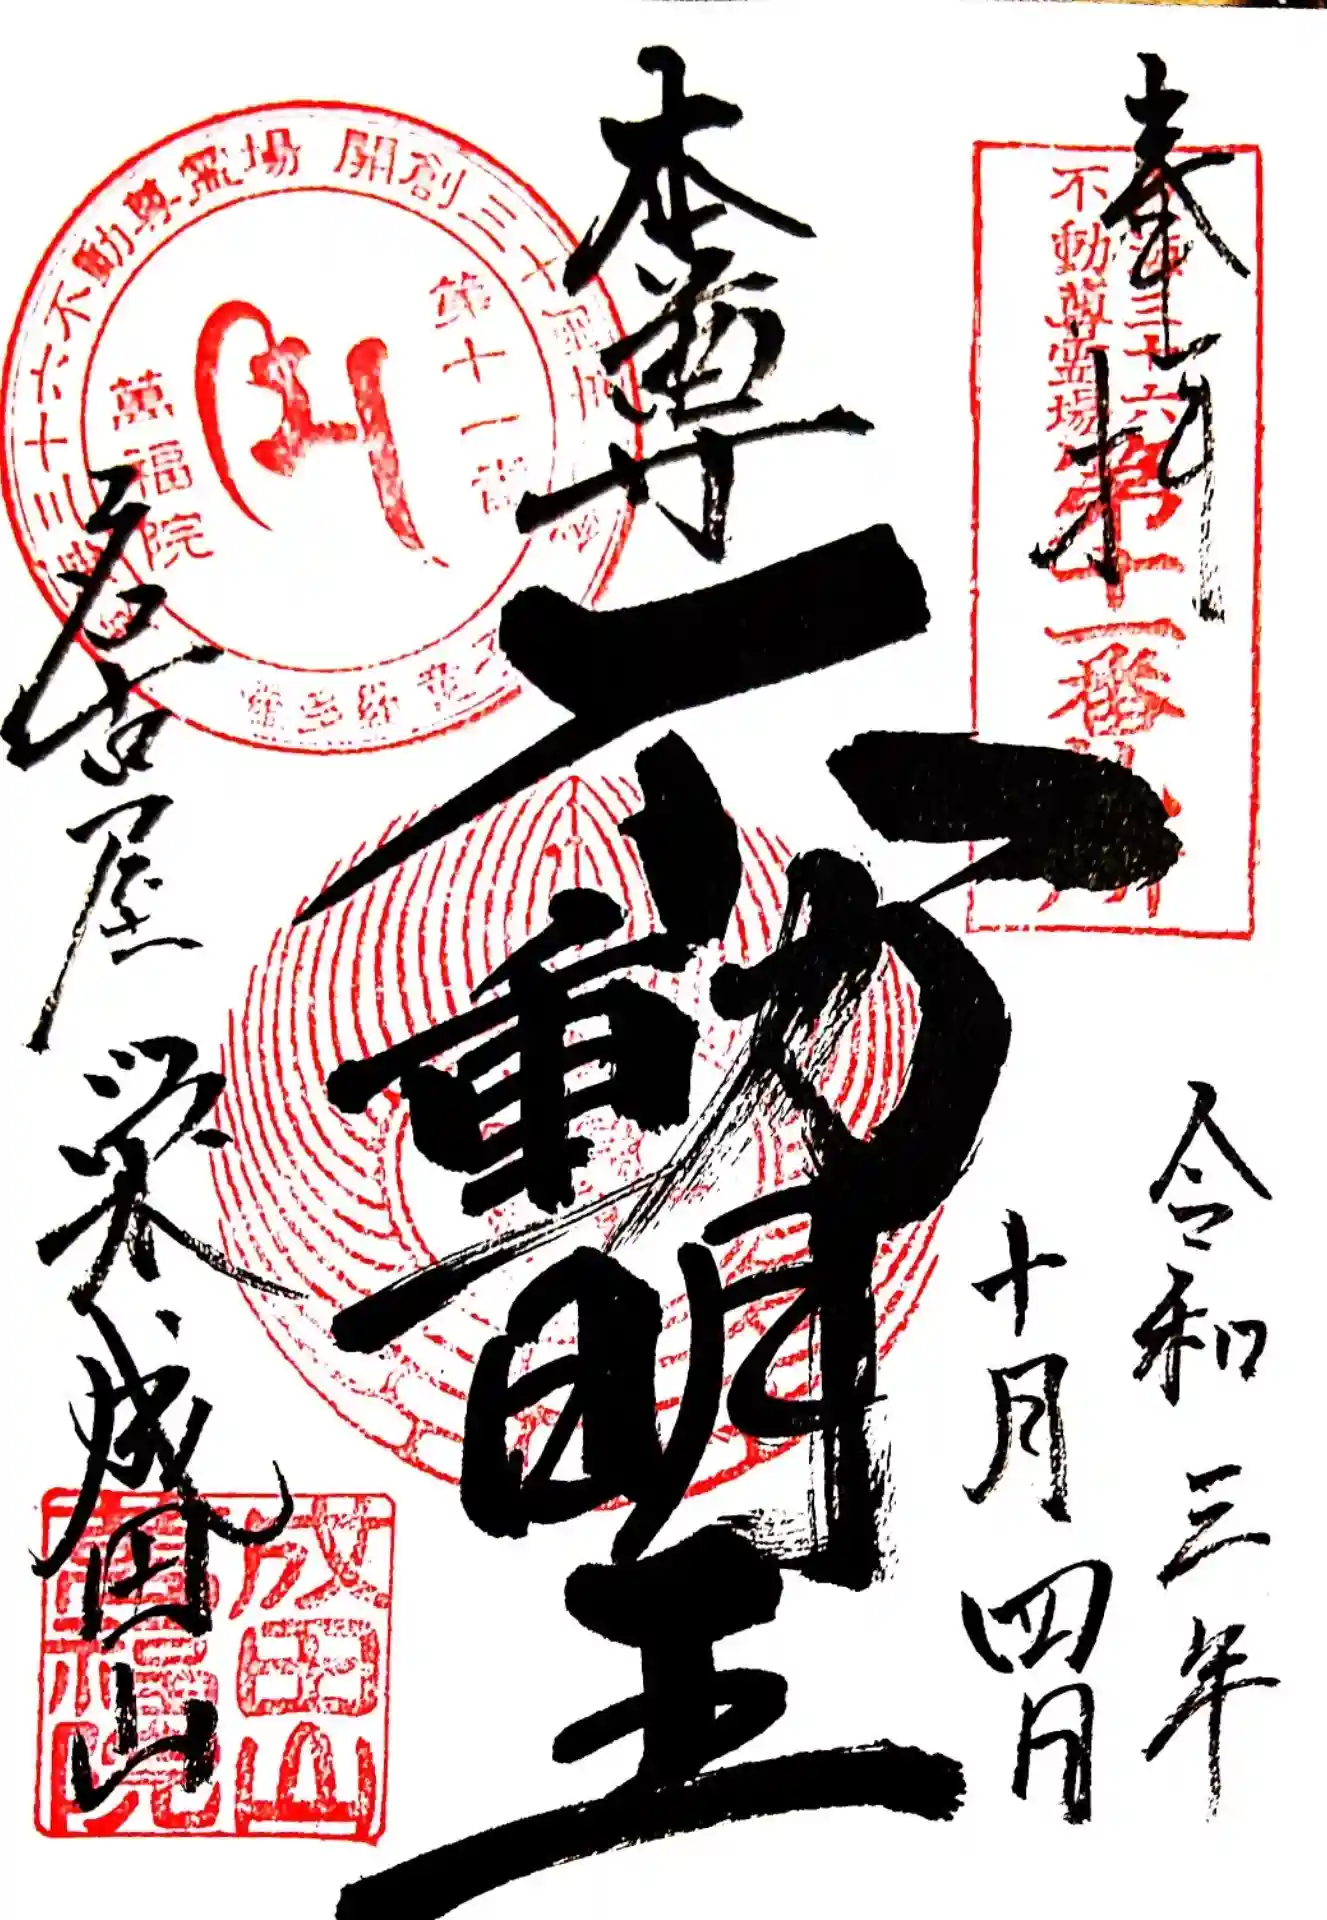 奉拝
不動尊霊場
三十六
第十一番
令和三年
十月四日
本尊
不動明王
三十六不動尊霊場 開創三十周年
第十一番
萬福院
名古屋 栄 成田山
成田山
萬福院